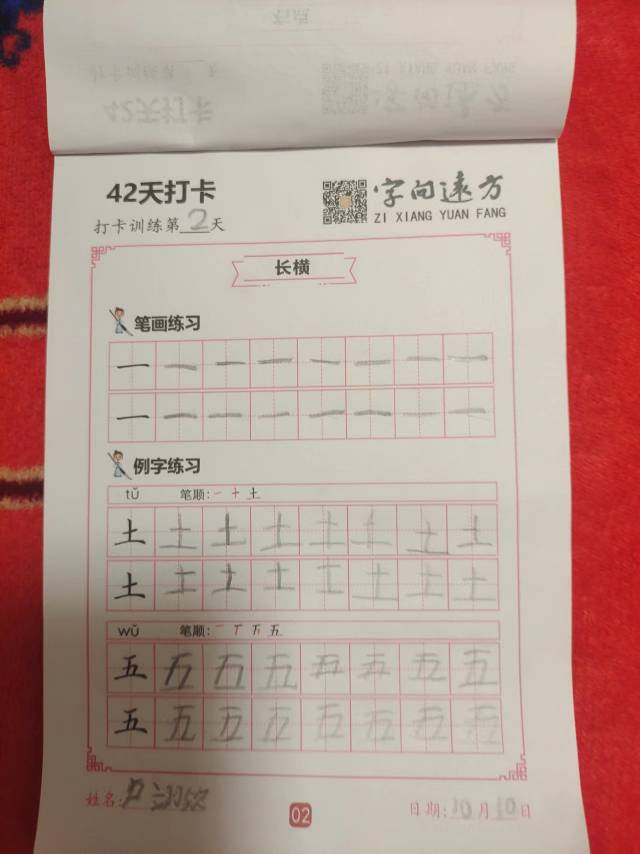 42天打卡
打卡训练第2天
字向远方
ZI XIANG YUAN FANG
长横
笔画练习
一 一 一 一 一 一 一 一
一 一 一 一 一 一 一 一
例字练习
tǔ 笔顺:一 十 土
土 土 土 土 土 土 土 土
土 土 土 土 土 土 土 土
wǔ 笔顺:一 丅 五 五
五 五 五 五 五 五 五 五
五 五 五 五 五 五 五 五
姓名:
02
日期:10月10日